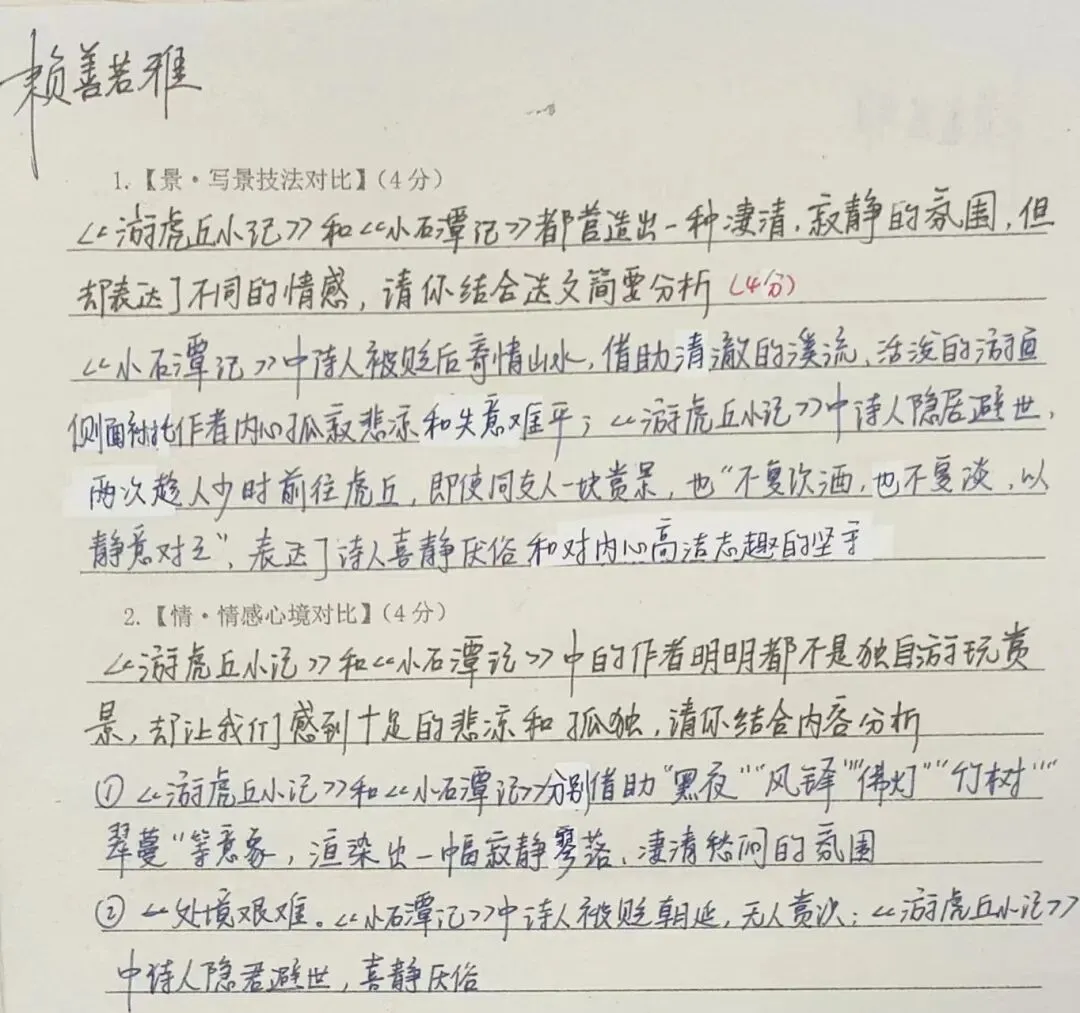 赖善若雅
1.【景·写景技法对比】(4分)
《游虎丘小记》和《小石潭记》都营造出一种凄清、寂静的氛围,但
却表达了不同的情感,请你结合选文简要分析(4分)
《小石潭记》中诗人被贬后寄情山水,借助清澈的溪流、活泼的游鱼
侧面衬托作者内心孤寂悲凉和失意难平;《游虎丘小记》中诗人隐居避世,
两次趁人少时前往虎丘,即使同友人一块赏景,也“不复饮酒,也不复谈,以
静意对之”,表达了诗人喜静厌俗和对内心高洁志趣的坚守
2.【情·情感心境对比】(4分)
《游虎丘小记》和《小石潭记》中的作者明明都不是独自游玩赏
景,却让我们感到十足的悲凉和孤独,请你结合内容分析
①《游虎丘小记》和《小石潭记》分别借助“黑夜”“风铎”“佛灯”“竹树”“
翠蔓”等意象,渲染出一幅寂静寥落、凄清愁悯的氛围
②《处境艰难。《小石潭记》中诗人被贬朝廷,无人赏识;《游虎丘小记》
中诗人隐君避世,喜静厌俗